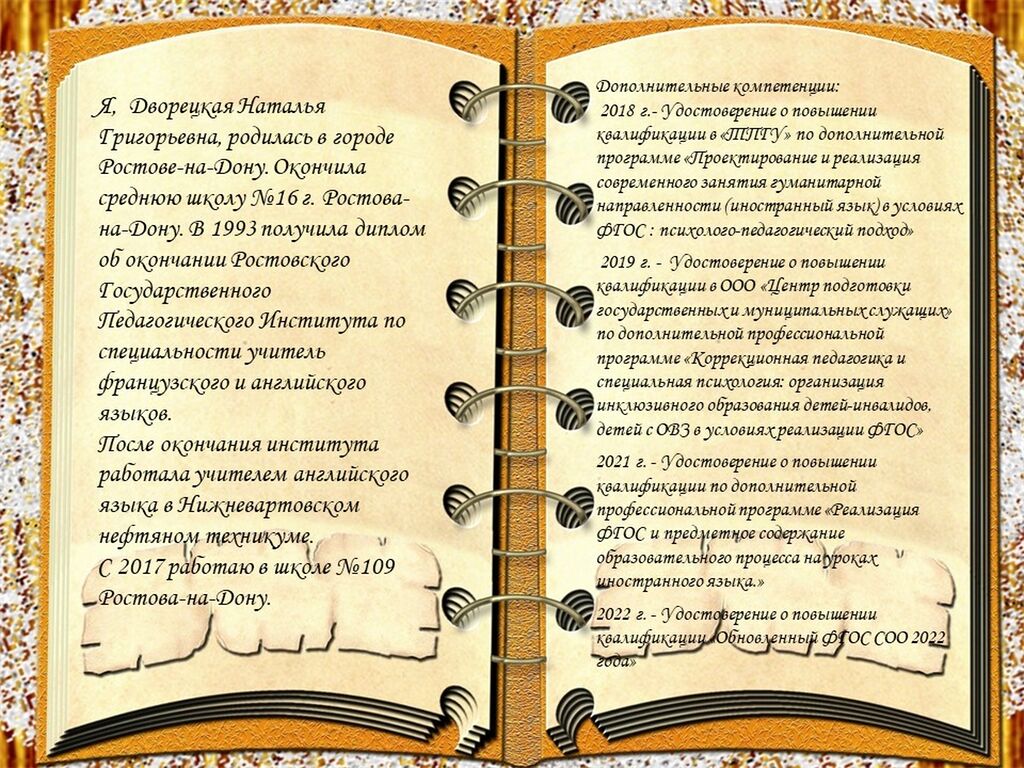 Я, Дворецкая Наталья
Григорьевна, родилась в городе
Ростове-на-Дону. Окончила
среднюю школу №16 г. Ростова-
на-Дону. В 1993 получила диплом
об окончании Ростовского
Государственного
Педагогического Института по
специальности учитель
французского и английского
языков.
После окончания института
работала учителем английского
языка в Нижневартовском
нефтяном техникуме.
С 2017 работаю в школе №109
Ростова-на-Дону.
Дополнительные компетенции:
2018 г.- Удостоверение о повышении
квалификации в «ТПГУ» по дополнительной
программе «Проектирование и реализация
современного занятия гуманитарной
направленности (иностранный язык) в условиях
ФГОС : психолого-педагогический подход»
2019 г. - Удостоверение о повышении
квалификации в ООО «Центр подготовки
государственных и муниципальных служащих»
по дополнительной профессиональной
программе «Коррекционная педагогика и
специальная психология: организация
инклюзивного образования детей-инвалидов,
детей с ОВЗ в условиях реализации ФГОС»
2021 г. - Удостоверение о повышении
квалификации по дополнительной
профессиональной программе «Реализация
ФГОС и предметное содержание
образовательного процесса на уроках
иностранного языка.»
2022 г. - Удостоверение о повышении
квалификации «Обновленный ФГОС СОО 2022
года»